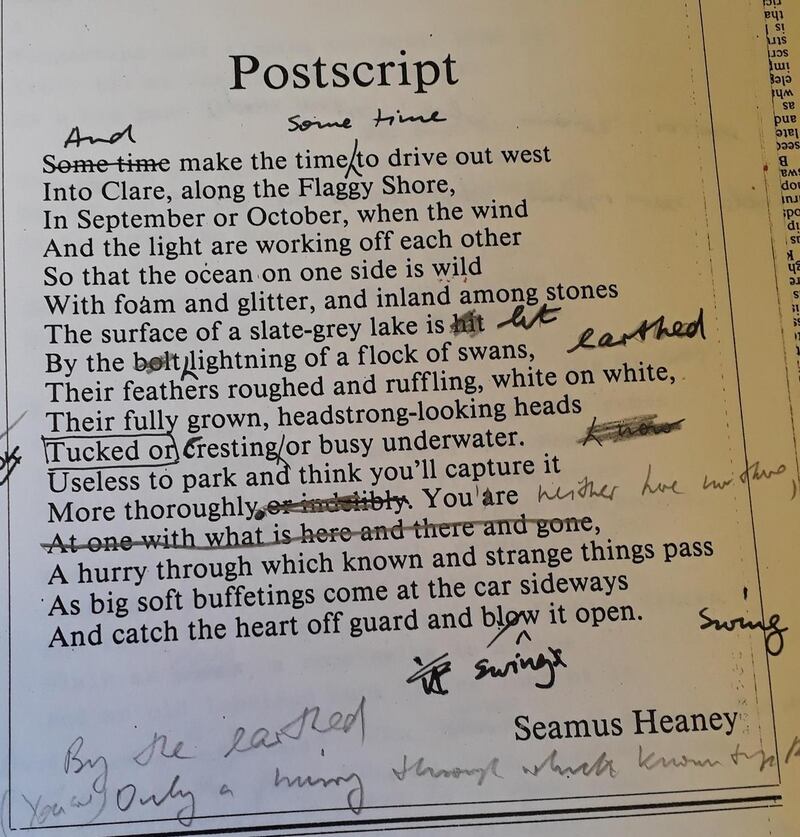 Postscript
And some time
Some time make the time to drive out west
Into Clare, along the Flaggy Shore,
In September or October, when the wind
And the light are working off each other
So that the ocean on one side is wild
With foam and glitter, and inland among stones
The surface of a slate-grey lake is hit lit
By the bolt lightning of a flock of swans, earthed
Their feathers roughed and ruffling, white on white,
Their fully grown, headstrong-looking heads
Tucked or cresting or busy underwater. know
Useless to park and think you'll capture it
More thoroughly or indelibly. You are neither here nor there,
At one with what is here and there and gone,
A hurry through which known and strange things pass
As big soft buffetings come at the car sideways
And catch the heart off guard and blow it open. swing
it swings
Seamus Heaney
By the earthed
(You are) Only a hurry through which known